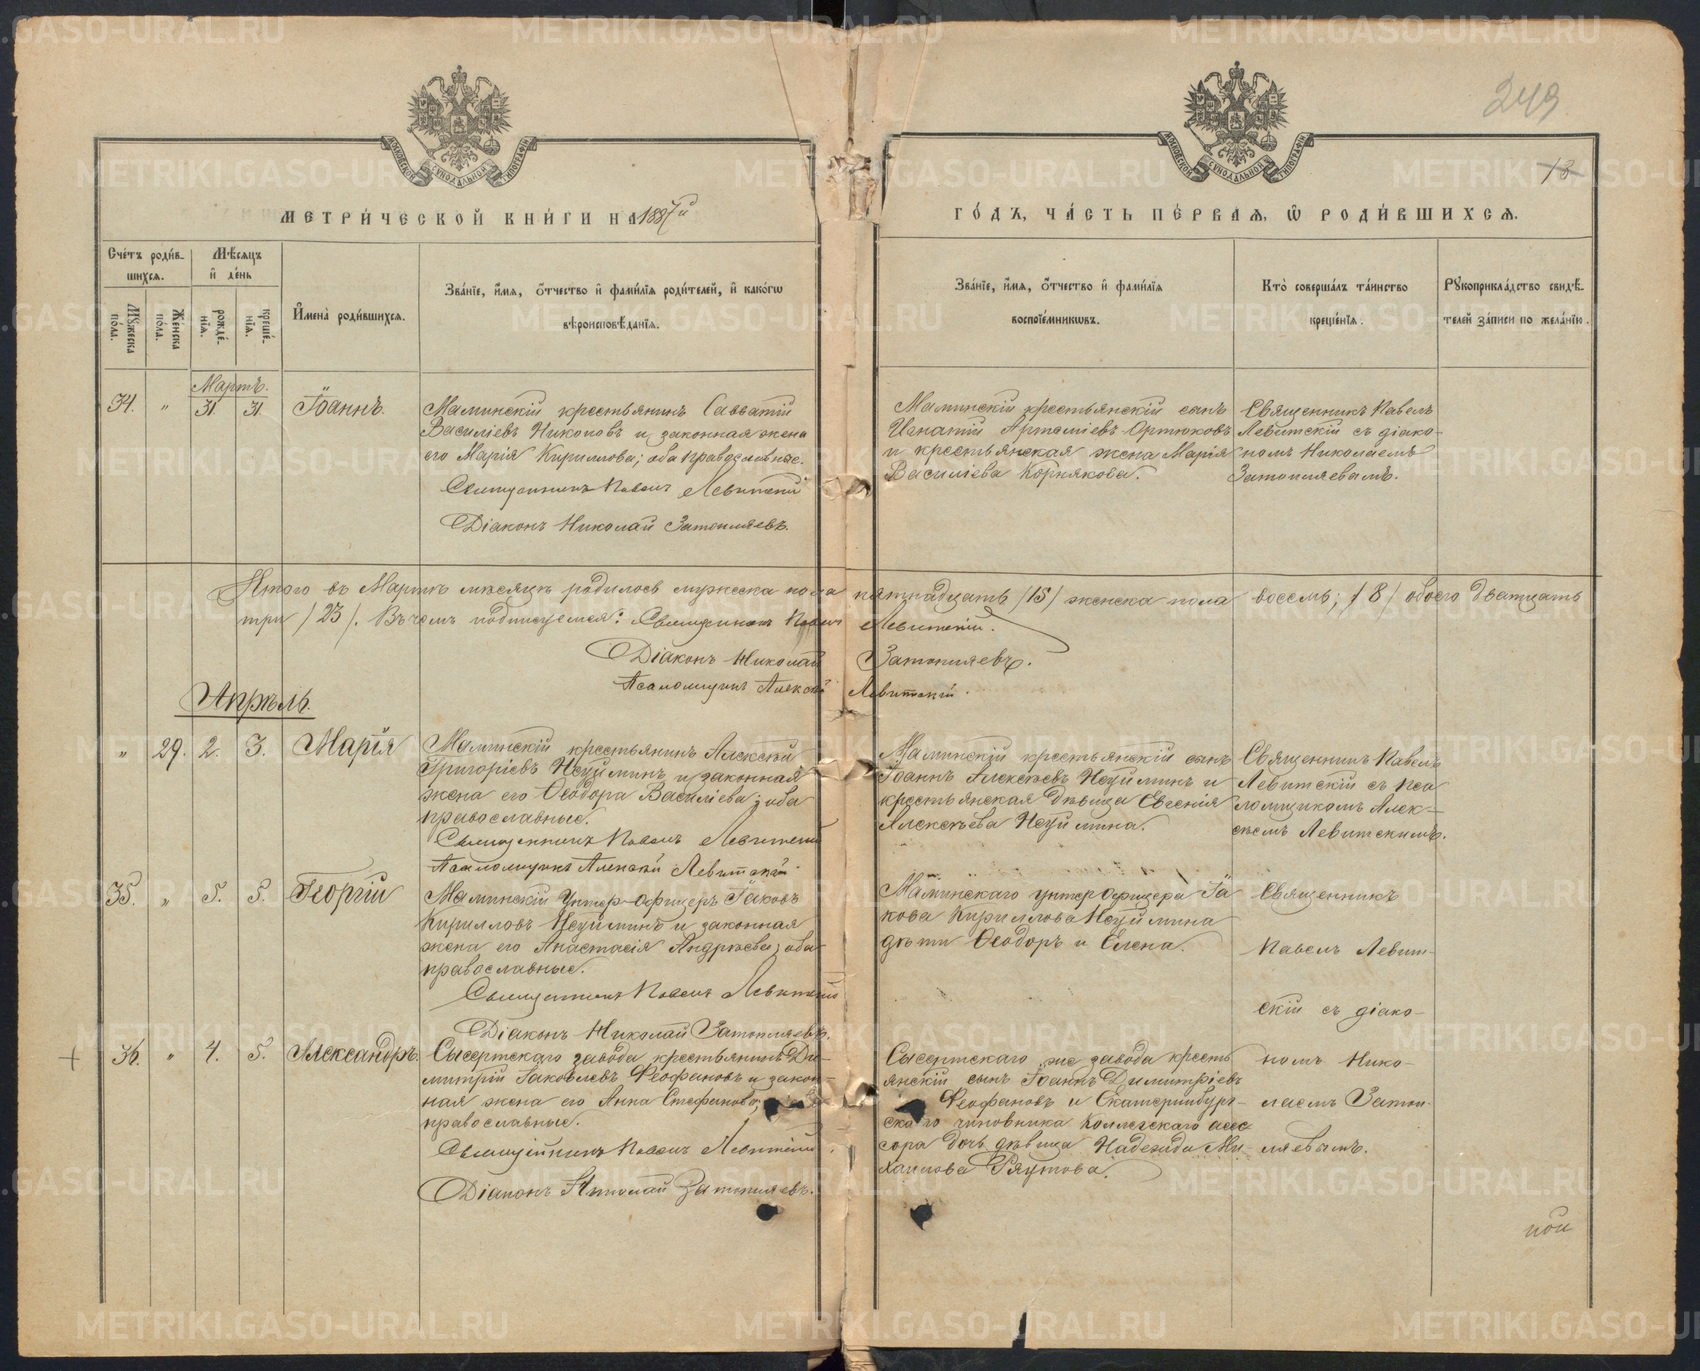 249
13
МЕТРИ́ЧЕСКОЙ КНИ́ГИ НА 1887й
ГО́ДЪ, ЧА́СТЬ ПЕ́РВАЯ, Ѽ РОДИ́ВШИХСЯ.
Сче́тъ роди́в-
шихся.
Мѣ́сяцъ
и҆ де́нь
И҆мена̀ роди́вшихся.
Зва́нїе, и҆́мя, ѻ҆́тчество и҆ фами́лїя роди́телей, и҆ како́гѡ
вѣроисповѣ́данїя.
Му́жеска по́ла.
Же́нска по́ла.
рожде́нїя.
креще́нїя.
Зва́нїе, и҆́мя, ѻ҆́тчество и҆ фами́лїя
воспрїе́мникѡвъ.
Кто̀ соверша́лъ та́инство
креще́нїя.
Рꙋкоприкла́дство свидѣ́-
телей за́писи по жела́нїю.
Мартъ.
34. " 31. 31. Іоаннъ.
Маминскій крестьянинъ Савватій
Василіевъ Никоновъ и законная жена
его Марія Кириллова; оба православные.
Священникъ Павелъ Левитскій
Діаконъ Николай Затопляевъ.
Маминскій крестьянскій сынъ
Игнатій Артеміевъ Ортюковъ
и крестьянская жена Марія
Василіева Корнякова.
Священникъ Павелъ
Левитскій съ діако-
номъ Николаемъ
Затопляевымъ.
Итого въ Мартѣ мѣсяцѣ родилось мужеска пола пятнадцать /15/ женска пола восемь; /8/ обоего двадцать
три /23/. Въ чемъ подписуемся: Священникъ Павелъ Левитскій.
Діаконъ Николай Затопляевъ.
Псаломщикъ Алексѣй Левитскій.
Апрѣль.
" 29. 2. 3. Марія
Маминскій крестьянинъ Алексѣй
Григоріевъ Неуйминъ и законная
жена его Ѳеодора Василіева; оба
православные.
Священникъ Павелъ Левитскій
Псаломщикъ Алексѣй Левитскій.
Маминскій крестьянскій сынъ
Іоаннъ Алексѣевъ Неуйминъ и
крестьянская дѣвица Евгенія
Алексѣева Неуймина.
Священникъ Павелъ
Левитскій съ Пса-
ломщикомъ Алек-
сѣемъ Левитскимъ.
35. " 5. 5. Георгій
Маминскій Унтер-офицеръ Іаковъ
Кирилловъ Неуйминъ и законная
жена его Анастасія Андреева; оба
православные.
Священникъ Павелъ Левитскій
Діаконъ Николай Затопляевъ.
Маминскаго унтер офицера Іа
кова Кириллова Неуймина
дѣти Ѳеодоръ и Елена.
Священникъ
Павелъ Левит-
скій съ діако-
номъ Нико-
лаемъ Затоп-
ляевымъ.
+ 36. " 4. 5. Александръ.
Сысертскаго завода крестьянинъ Ди-
митрій Іаковлевъ Ѳеофановъ и закон-
ная жена его Анна Стефанова;
православные.
Священникъ Павелъ Левитскій.
Діаконъ Николай Затопляевъ.
Сысертскаго же завода кресть
янскій сынъ Іоаннъ Димитріевъ
Ѳеофановъ и Екатеринбург-
скаго чиновника Коллежскаго асес
сора дочь дѣвица Надежда Ми-
хаилова